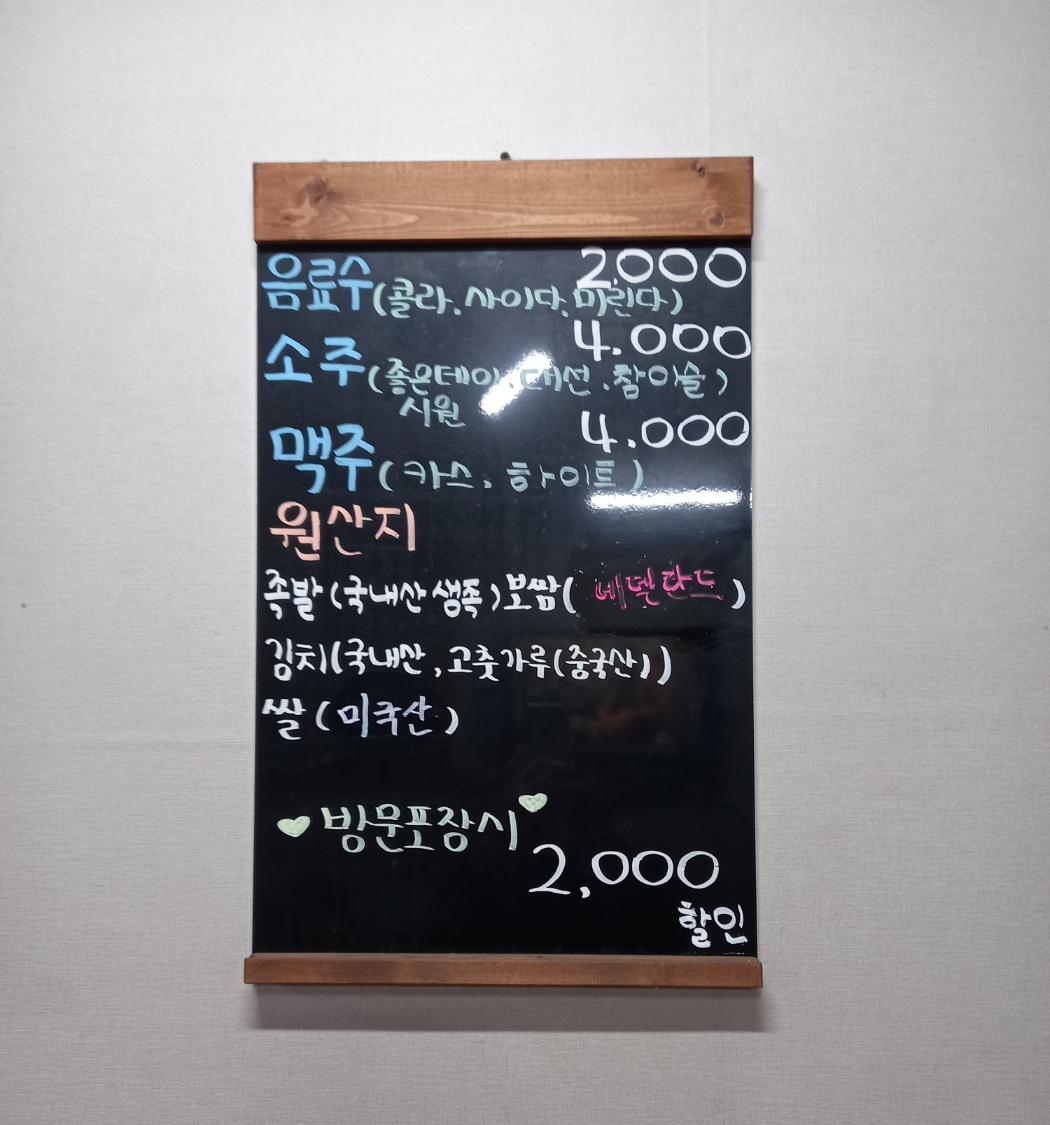 음료수 2,000
(콜라, 사이다, 미린다)
소주 4.000
(좋은데이, 대선, 참이슬)
시원
맥주 4.000
(카스, 하이트)
원산지
족발(국내산 생족)보쌈(네델란드)
김치(국내산, 고춧가루(중국산))
쌀(미국산)
♥방문포장시♥
2,000
할인